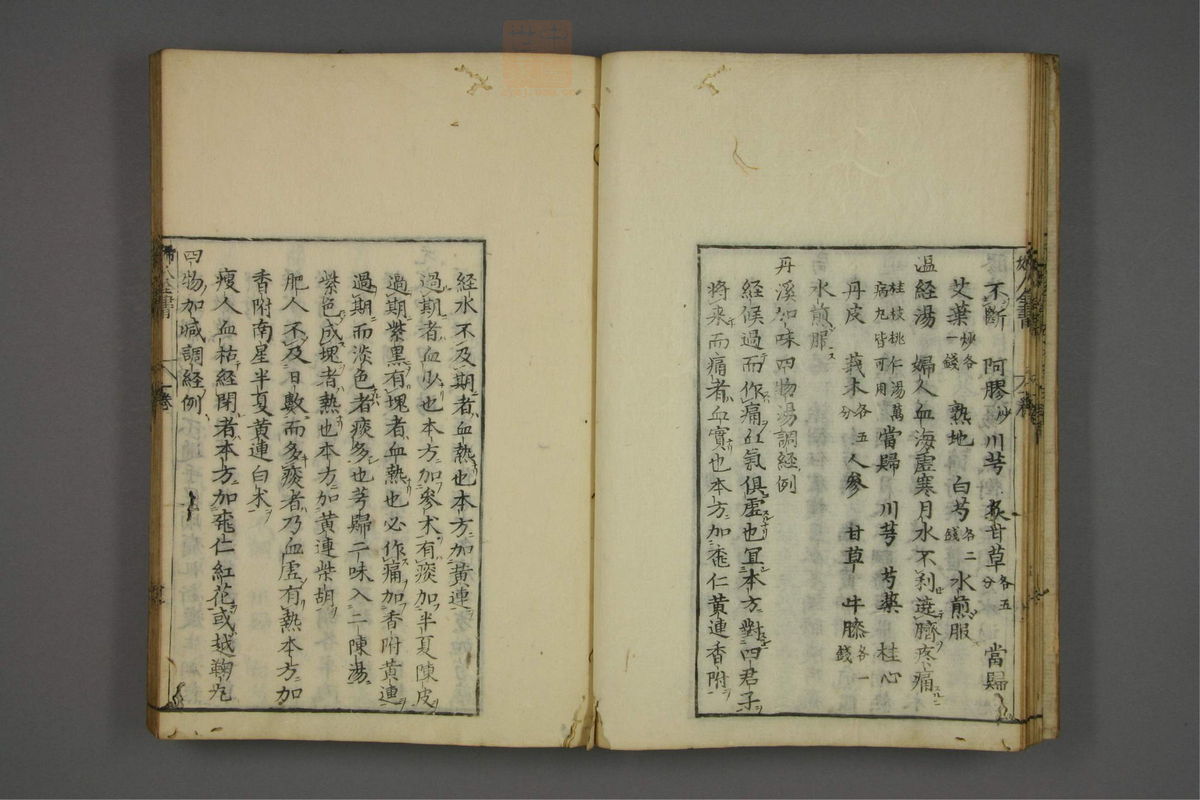 不断 阿膠炒 川芎 炙甘草各五分 當歸
艾葉炒各一錢 熟地 白芍各二錢 水煎服
温経湯 婦人血海虚寒月水不利遶臍疼痛
桂枝桃仁湯萬病丸皆可用 當歸 川芎 芍薬 桂心
丹皮 莪朮各五分 人參 甘草 牛膝各一錢
水煎服
丹溪加味四物湯調経例
経候過而作痛血氣俱虚也宜本方對四君子
将来而痛者血實也本方加桃仁黄連香附
経水不及期者血熱也本方加黄連
過期者血少也本方加參朮有痰加半夏陳皮
過期紫黒有塊者血熱也必作痛加香附黄連
過期而淡色者痰多也芎歸二味入二陳湯
紫色成塊者熱也本方加黄連柴胡
肥人不及日數而多痰者乃血虚有熱本方加
香附南星半夏黄連白朮
瘦人血枯経閉者本方加桃仁紅花或越鞠丸
四物加減調経例